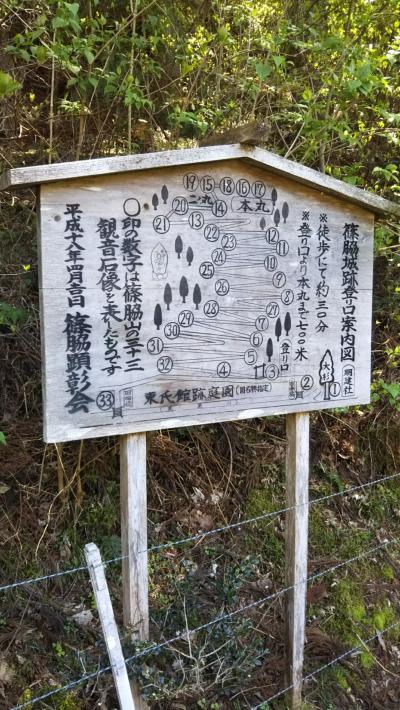 篠脇城登口案内図
※登り口より本丸まで七〇〇米
※徒歩にて約三〇分
⑲ ⑮ ⑱ ⑯ ⑰
⑳ 二ノ丸 ⑭ (本丸)
㉑ ⑬ ⑫
㉒ ㉓ ⑪
㉔
㉕ ⑩
㉖ ⑨
㉘ ⑧
㉙ ⑦
㉚ ㉗ ⑥
㉛ ⑤
㉜ ④ ③ 登り口
② ①
大杉
明建社
東氏館跡庭園
㉝
〇印の数字は篠脇山の三十三
観音石像を表したものです
平成十八年四月吉日
篠脇顕彰会